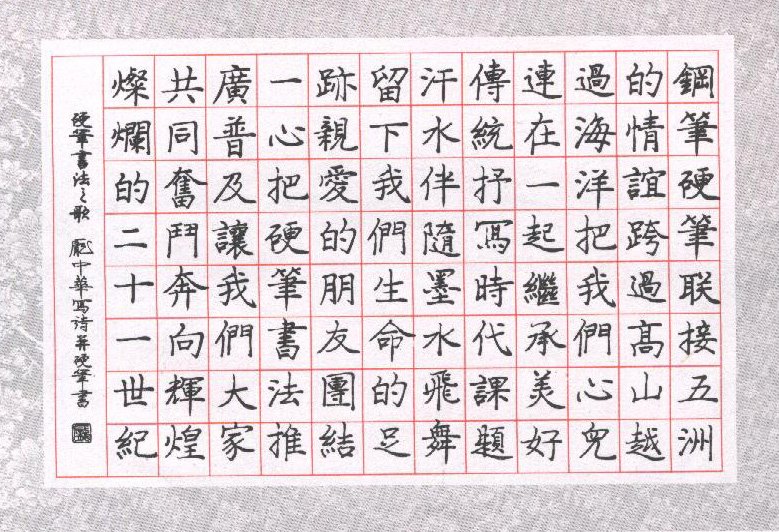 鋼筆硬筆联接五洲
的情誼跨過髙山越
過海洋把我們心兒
連在一起繼承美好
傳統抒寫時代課題
汗水伴隨墨水飛舞
留下我們生命的足
跡親愛的朋友團結
一心把硬筆書法推
廣普及讓我們大家
共同奮鬥奔向輝煌
燦爛的二十一世紀
硬筆書法之歌 龐中華寫诗并硬筆書